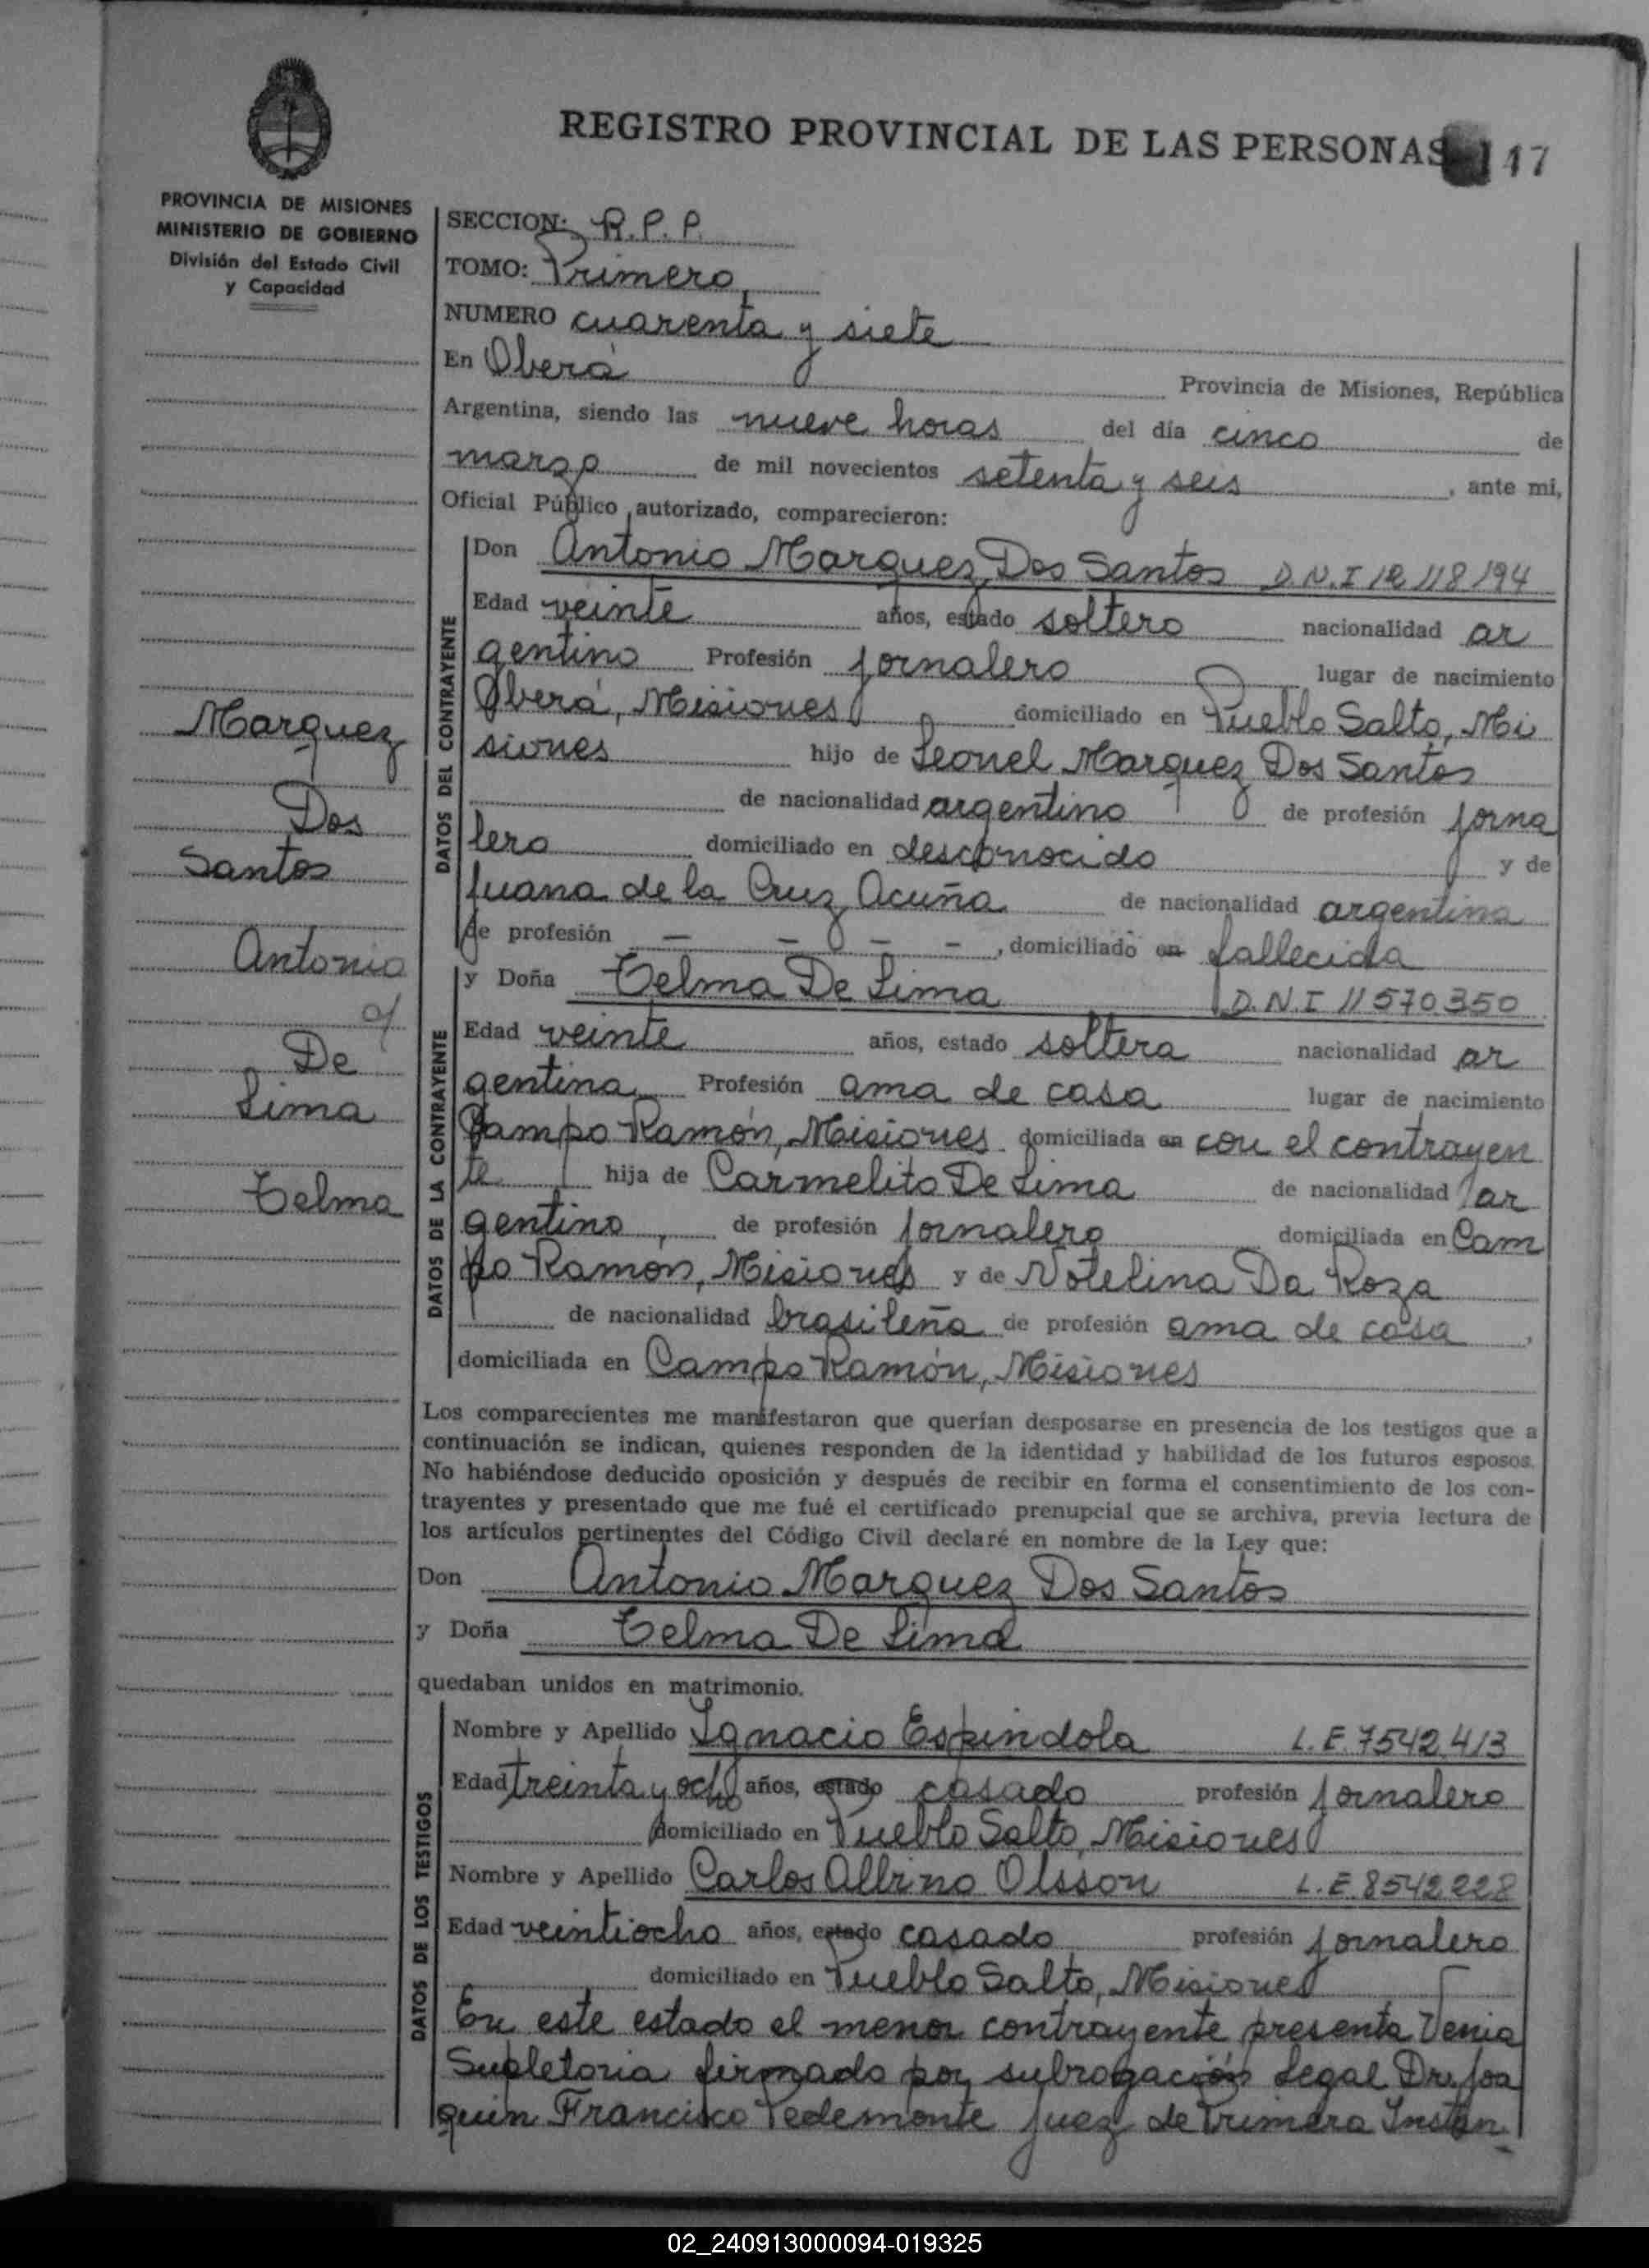 REGISTRO PROVINCIAL DE LAS PERSONAS 17
PROVINCIA DE MISIONES
MINISTERIO DE GOBIERNO
División del Estado Civil
y Capacidad
SECCION: R.P.P.
TOMO: Primero,
NUMERO cuarenta y siete
En Oberá Provincia de Misiones, República
Argentina, siendo las nueve horas del día cinco de
marzo de mil novecientos setenta y seis, ante mi,
Oficial Público autorizado, comparecieron:
DATOS DEL CONTRAYENTE
Don Antonio Marquez Dos Santos D.N.I 12 118 194
Edad veinte años, estado soltero nacionalidad ar
gentino Profesión jornalero lugar de nacimiento
Oberá, Misiones domiciliado en Pueblo Salto, Mi
siones hijo de Leonel Marquez Dos Santos
de nacionalidad argentino de profesión jorna
lero domiciliado en desconocido y de
Juana de la Cruz Acuña de nacionalidad argentina
de profesión - - - -, domiciliado en fallecida
Marquez
Dos
Santos
Antonio
y
De
Lima
Telma
DATOS DE LA CONTRAYENTE
y Doña Telma De Lima D.N.I 11 570.350
Edad veinte años, estado soltera nacionalidad ar
gentina Profesión ama de casa lugar de nacimiento
Campo Ramón, Misiones domiciliada en con el contrayen
te hija de Carmelito De Lima de nacionalidad ar
gentino, de profesión jornalero domiciliada en Cam
po Ramón, Misiones y de Notelina Da Roza
de nacionalidad brasileña de profesión ama de casa,
domiciliada en Campo Ramón, Misiones
Los comparecientes me manifestaron que querían desposarse en presencia de los testigos que a
continuación se indican, quienes responden de la identidad y habilidad de los futuros esposos.
No habiéndose deducido oposición y después de recibir en forma el consentimiento de los con-
trayentes y presentado que me fué el certificado prenupcial que se archiva, previa lectura de
los artículos pertinentes del Código Civil declaré en nombre de la Ley que:
Don Antonio Marquez Dos Santos
y Doña Telma De Lima
quedaban unidos en matrimonio.
DATOS DE LOS TESTIGOS
Nombre y Apellido Ignacio Espindola L.E. 7542.413
Edad treinta y ocho años, estado casado profesión jornalero
domiciliado en Pueblo Salto, Misiones
Nombre y Apellido Carlos Albino Olsson L.E. 8542.228
Edad veintiocho años, estado casado profesión jornalero
domiciliado en Pueblo Salto, Misiones
En este estado el menor contrayente presenta Venia
Supletoria firmado por subrogación Legal Dr. Joa
quin Francisco Pedemonte Juez de Primera Instan
02_240913000094-019325